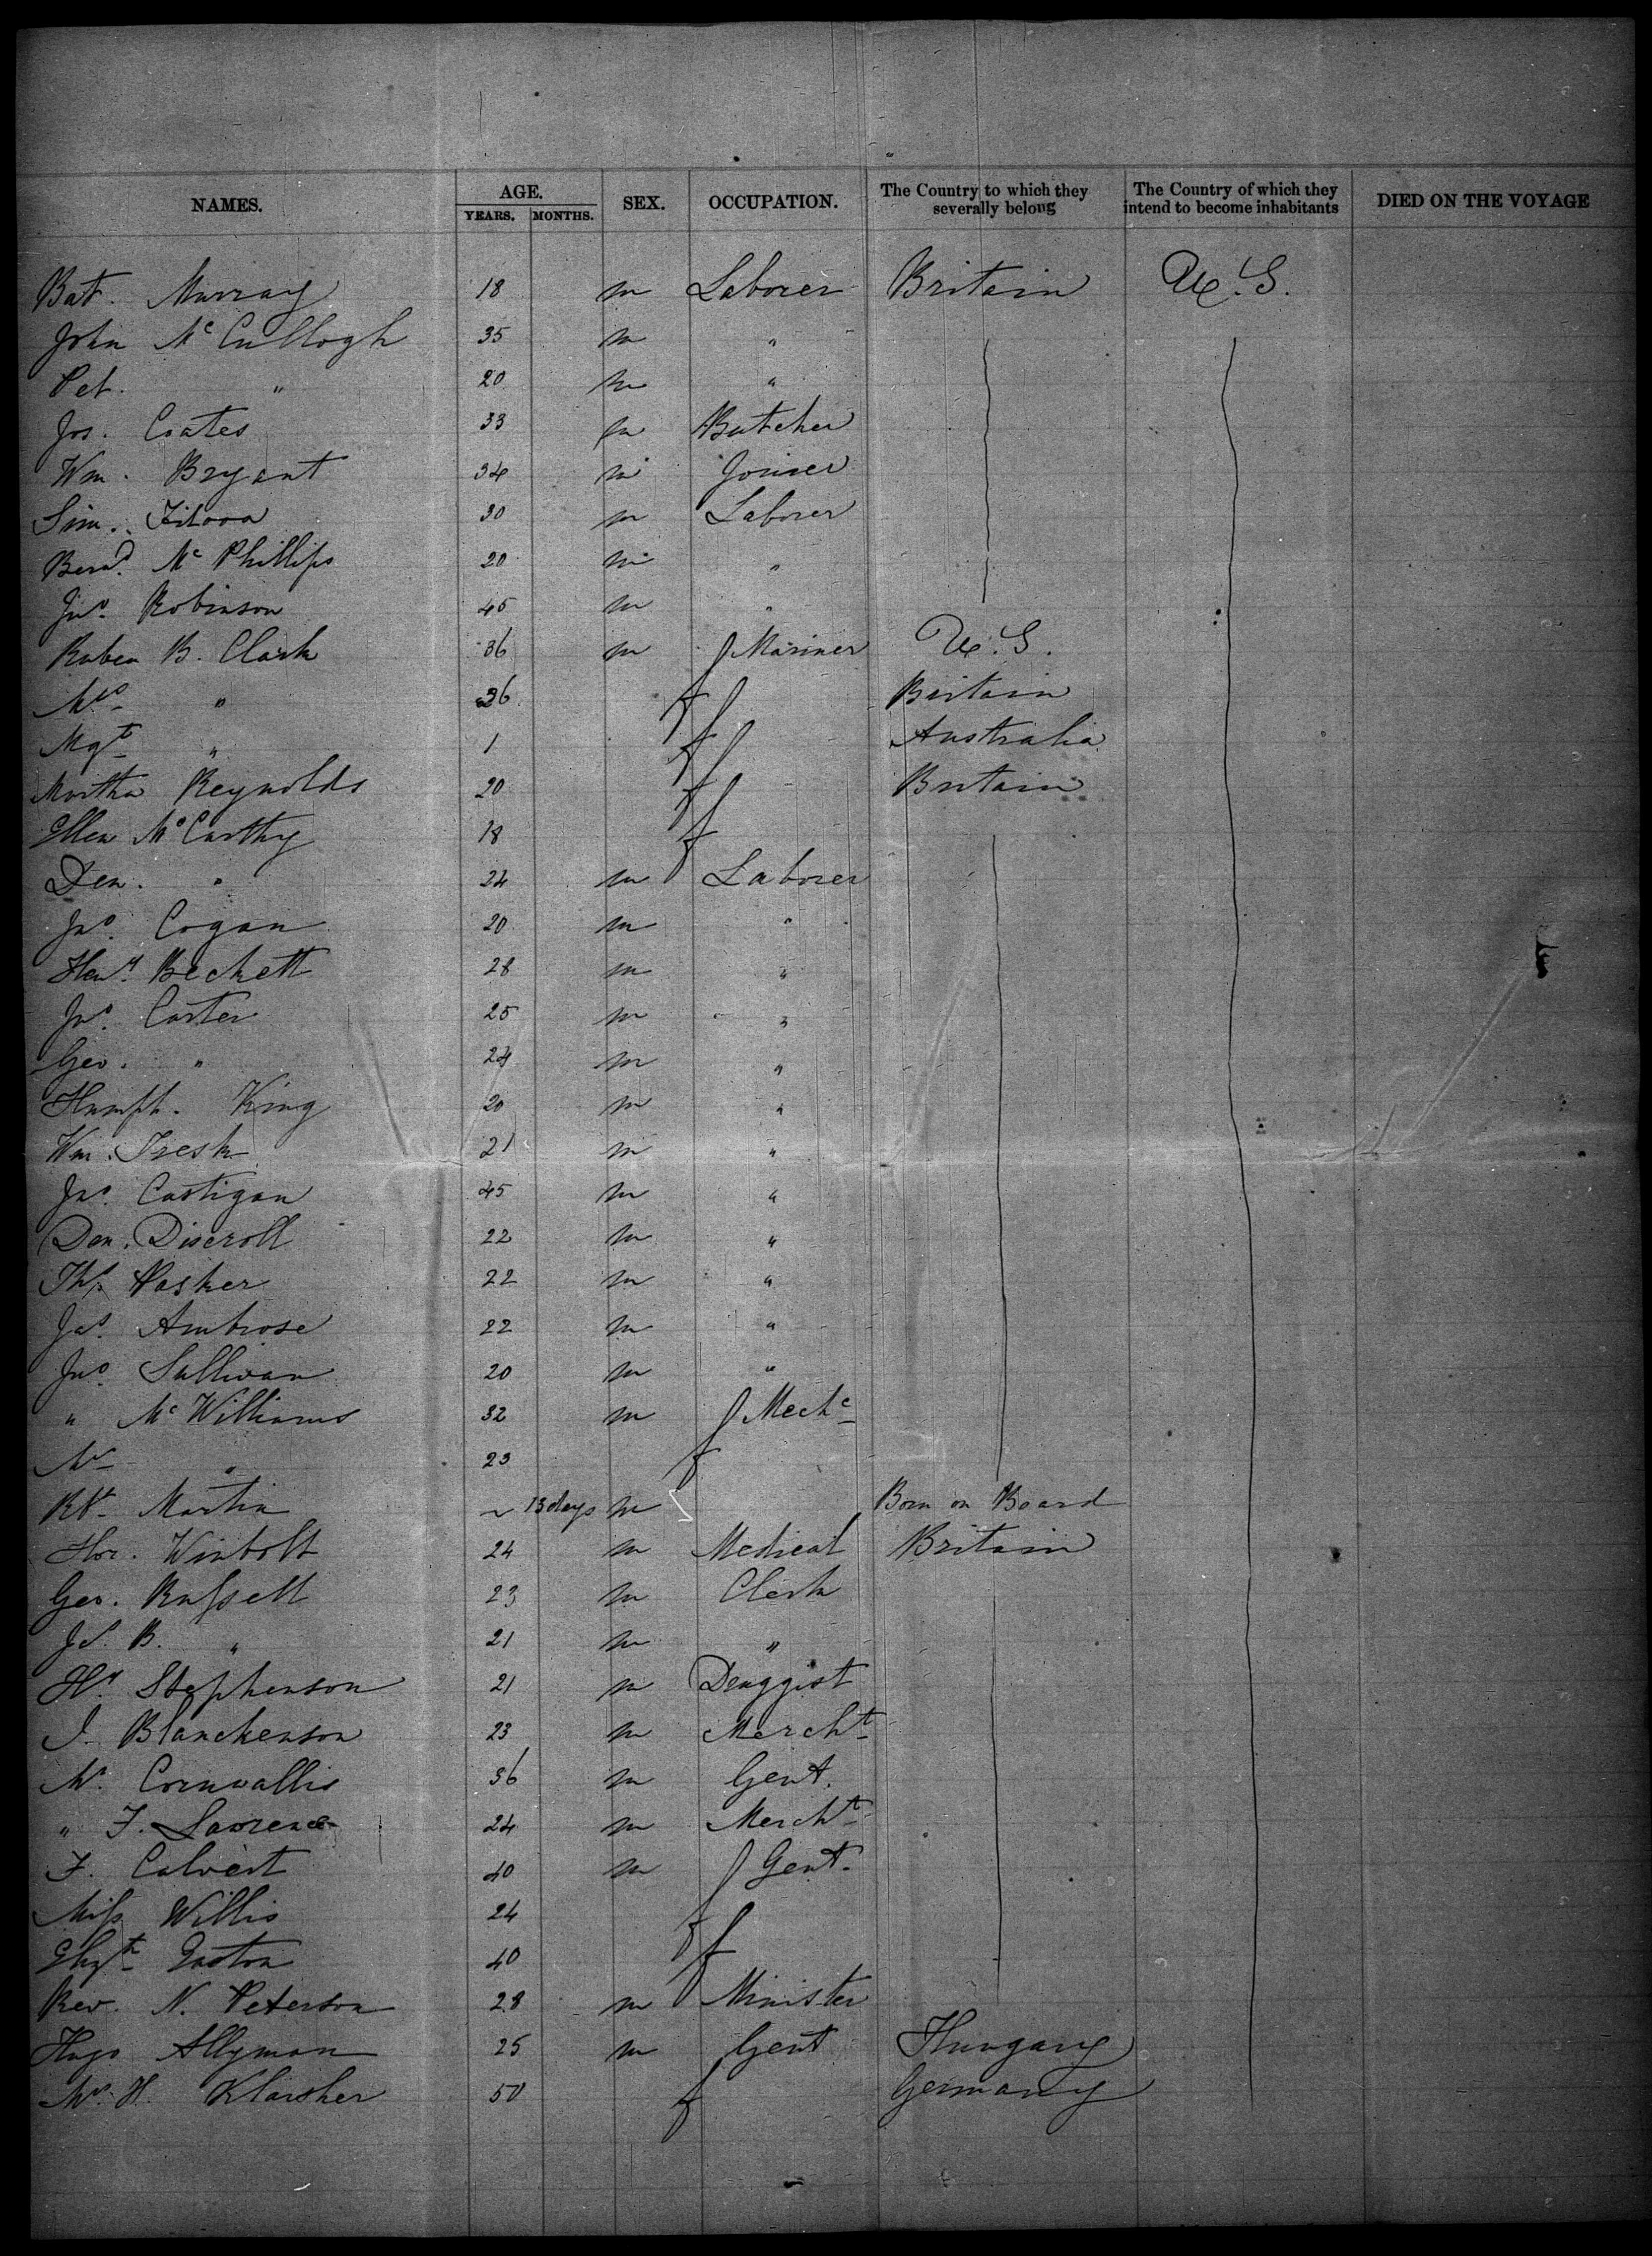 NAMES. AGE. YEARS. MONTHS. SEX. OCCUPATION. The Country to which they severally belong The Country of which they intend to become inhabitants DIED ON THE VOYAGE
Bat. Murray 18 m Laborer Britain U.S.
John McCullogh 35 m "
Pet. " 20 m "
Jos. Coates 33 m Butcher
Wm. Bryant 34 m Joiner
Sim. 30 m Laborer
Bernd. McPhillips 20 m "
Jno. Robinson 45 m "
Ruben B. Clark 36 m Mariner U.S.
Mrs " 26 f Britain
Mgt " 1 f Australia
Martha Reynolds 20 f Britain
Ellen McCarthy 18 f
Den. " 24 m Laborer
Jno. Cogan 20 m "
Heny. Beckett 28 m "
Jno. Carter 25 m "
Geo. " 24 m "
Humph. King 20 m "
Wm. Tresk 21 m "
Jno. Costigan 45 m "
Dan. Discroll 22 m "
Ths. Pasker 22 m "
Jas. Ambrose 22 m "
Jno. Sullivan 20 m "
" McWilliams 32 m Mechc
Mrs " 23 f
Rt. Martin ~ 13 days m Born on Board
Hor. Winbolt 24 m Medical Britain
Geo. Russell 23 m Clerk
Js. B. " 21 m "
Hy. Stephenson 21 m Druggist
J. Blanckenson 23 m Mercht
Mr. Cornwallis 36 m Gent.
" F. Lawrence 24 m Mercht
F. Calvert 40 m Gent.
Miss Willis 24 f
Elizth Easton 40 f
Rev. N. Peterson 28 m Minister
Hugo Allyman 25 m Gent Hungary
Mrs. H. Klarsker 50 f Germany